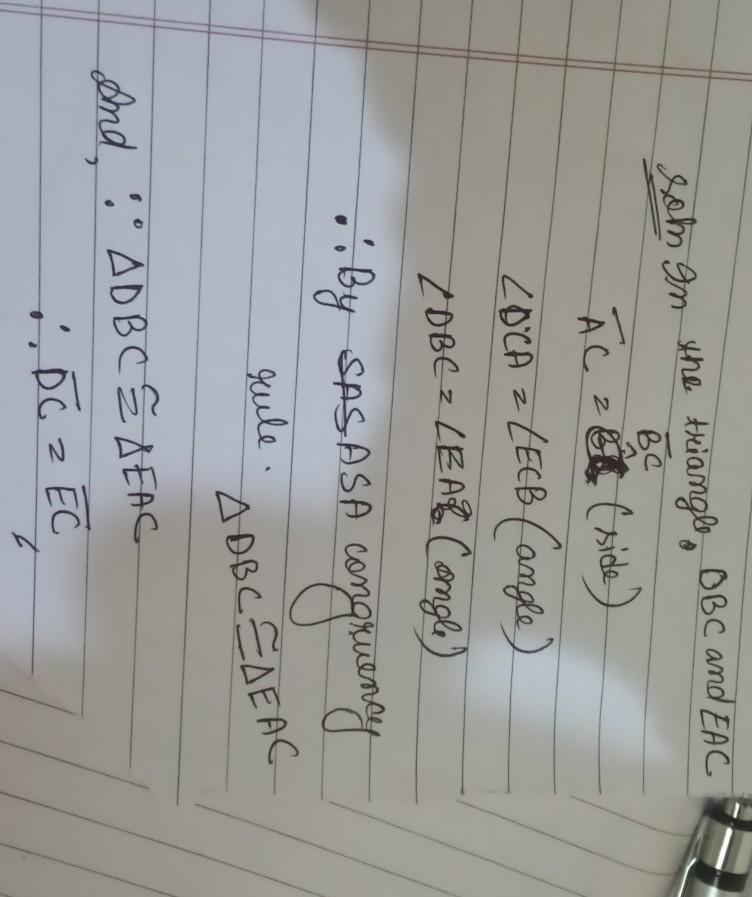 Soln In the triangle, DBC and EAC
AC = BC (side)
∠DCA = ∠ECB (angle)
∠DBC = ∠EAC (angle)
∴ By SAS ASA congruency
rule.
△DBC ≅ △EAC
And, ∵ △DBC ≅ △EAC
∴ DC = EC